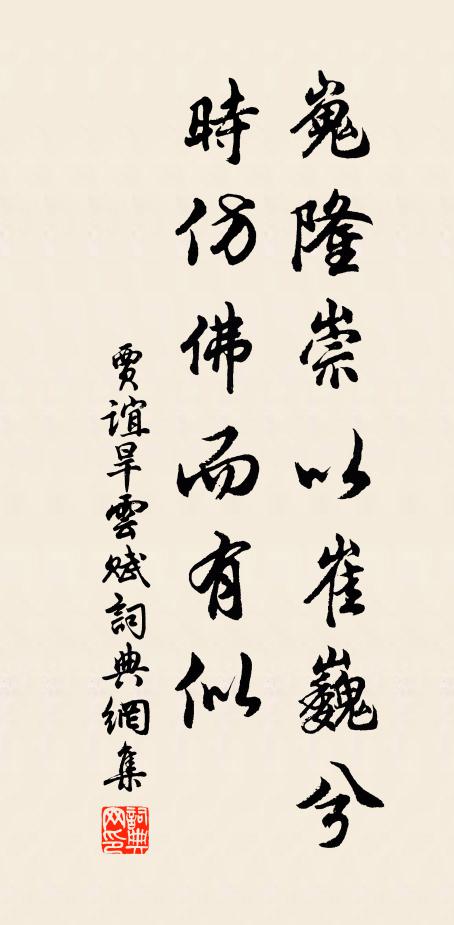 嵬隆崇以崔巍兮
時仿佛而有似
賈誼旱雲賦詞典網集
詞典网印